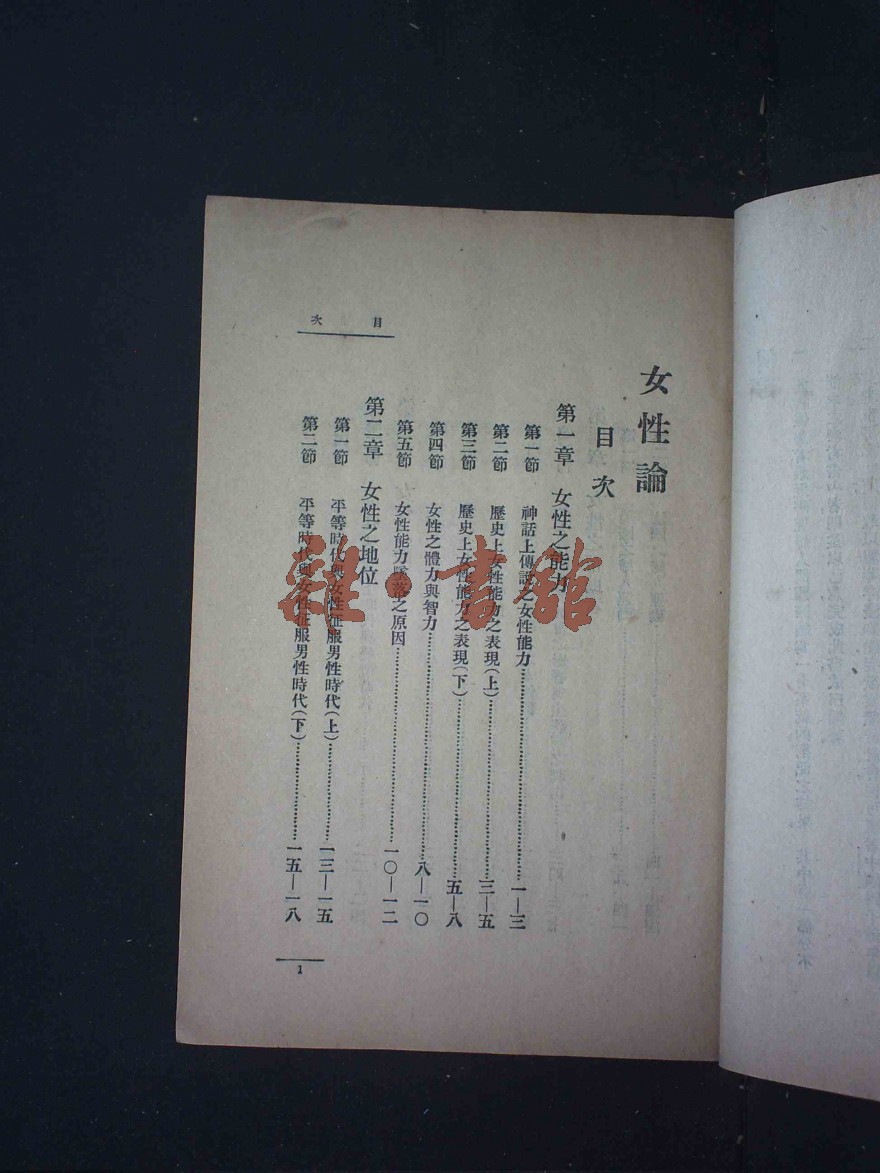 目次
女性論
目次
第一章 女性之能力
第一節 神話上傳說之女性能力……一—三
第二節 歷史上女性能力之表現(上)……三—五
第三節 歷史上女性能力之表現(下)……五—八
第四節 女性之體力與智力……八—一〇
第五節 女性能力墜落之原因……一〇—一二
第二章 女性之地位
第一節 平等時代與女性征服男性時代(上)……一三—一五
第二節 平等時代與女性征服男性時代(下)……一五—一八
1
雜·書館